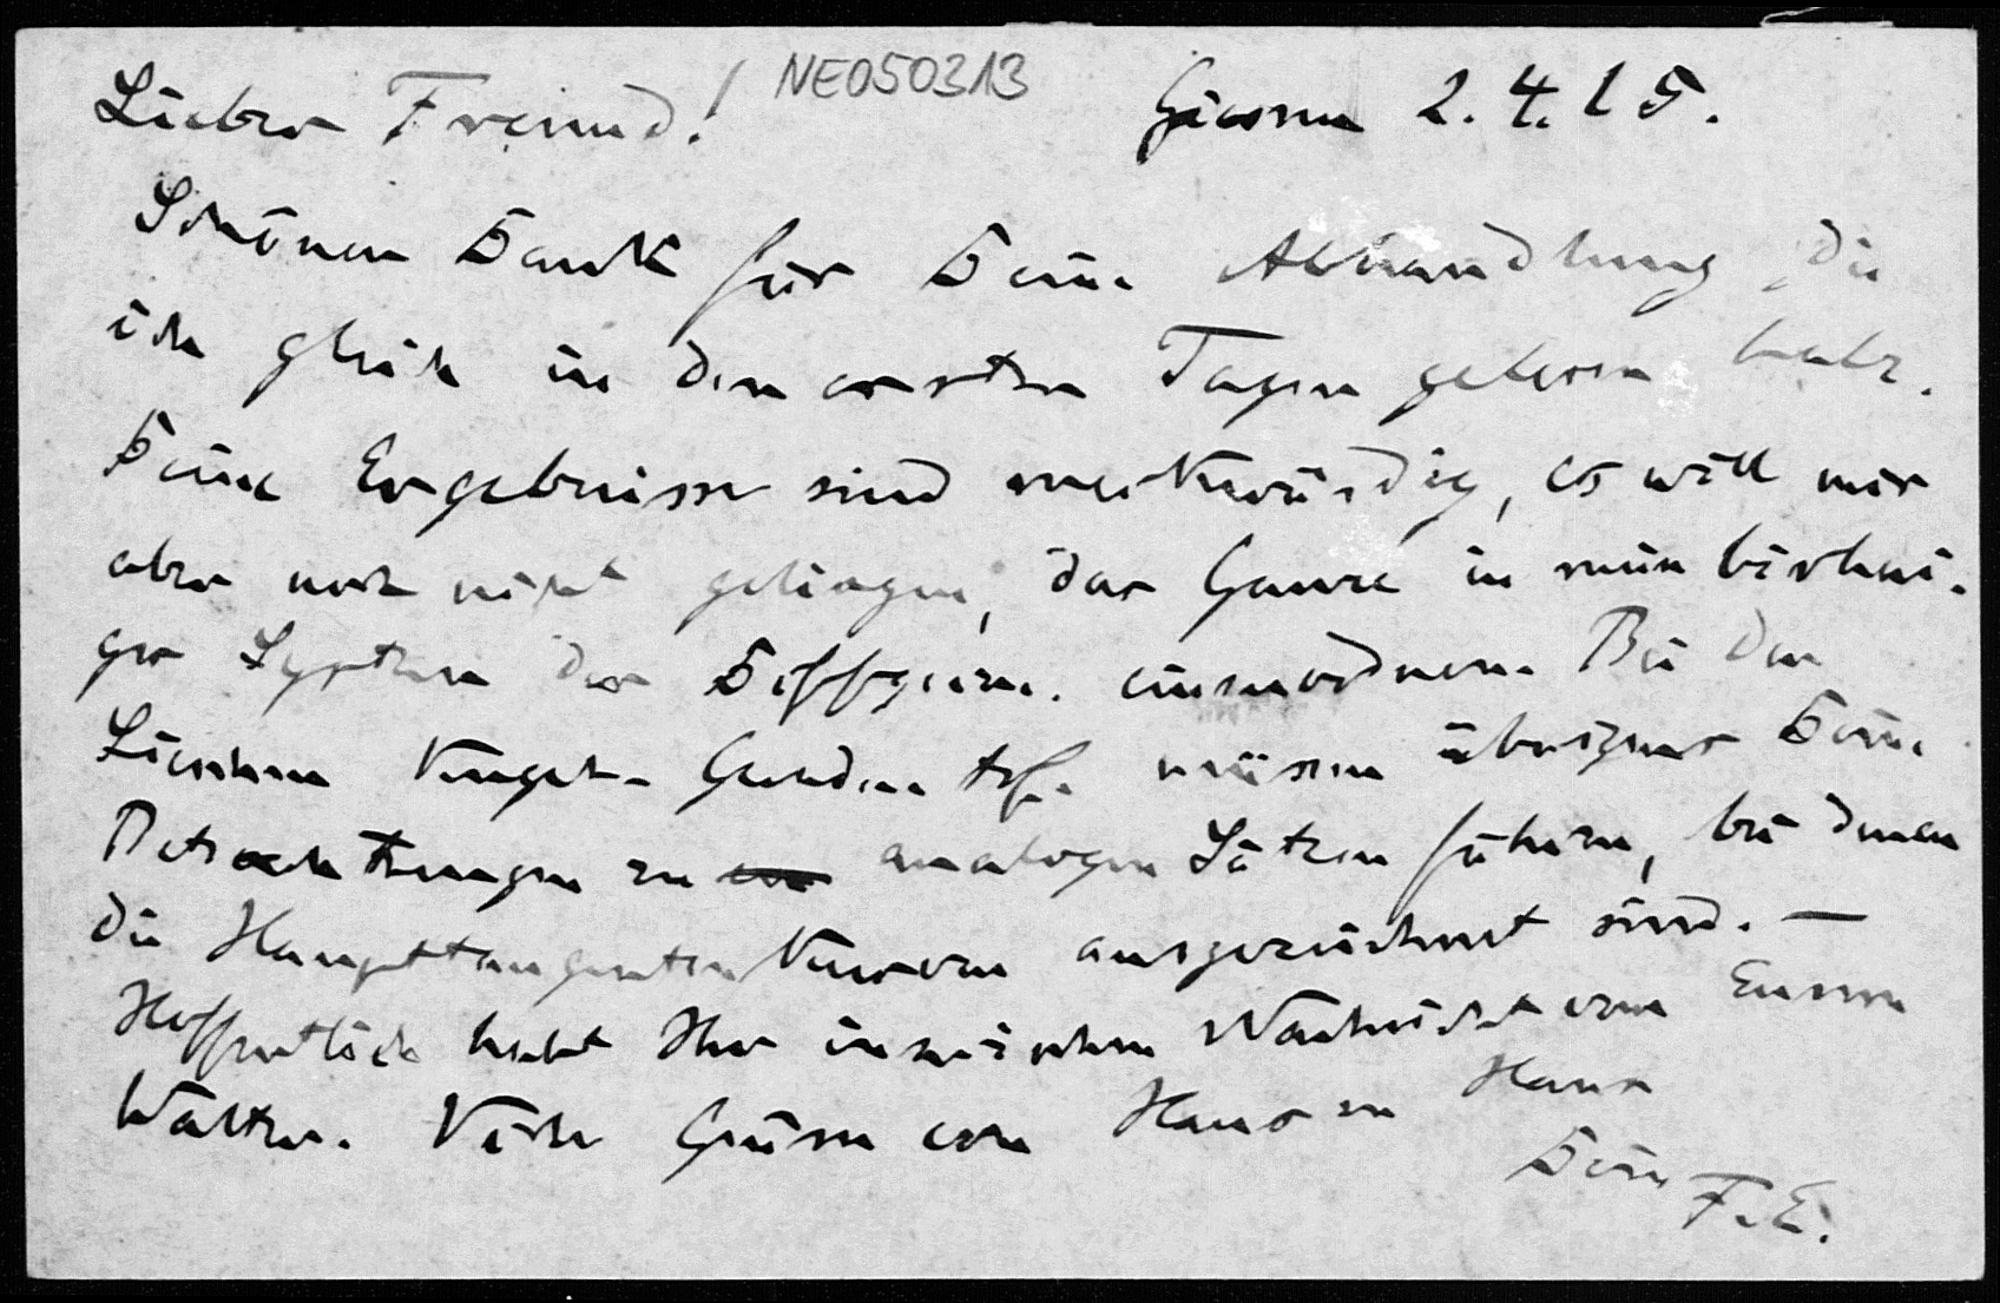 Lieber Freund! NE050313 Giessen 2.4.15.
Schönen Dank für Deine Abhandlung, die
ich gleich in den ersten Tagen gelesen habe.
Deine Ergebnisse sind merkwürdig, es will mir
aber noch nicht gelingen, das Ganze in mein bisheri-
ges System der Diffgeom. einzuordnen. Bei der
Lieschen Kugel-Geraden trf. müssen übrigens Deine
Betrachtungen zu analogen Sätzen führen, bei denen
die Haupttangentenkurven ausgezeichnet sind. —
Hoffentlich habt Ihr inzwischen Nachricht von Eurem
Walter. Viele Grüsse von Haus zu Haus
Dein F.E.